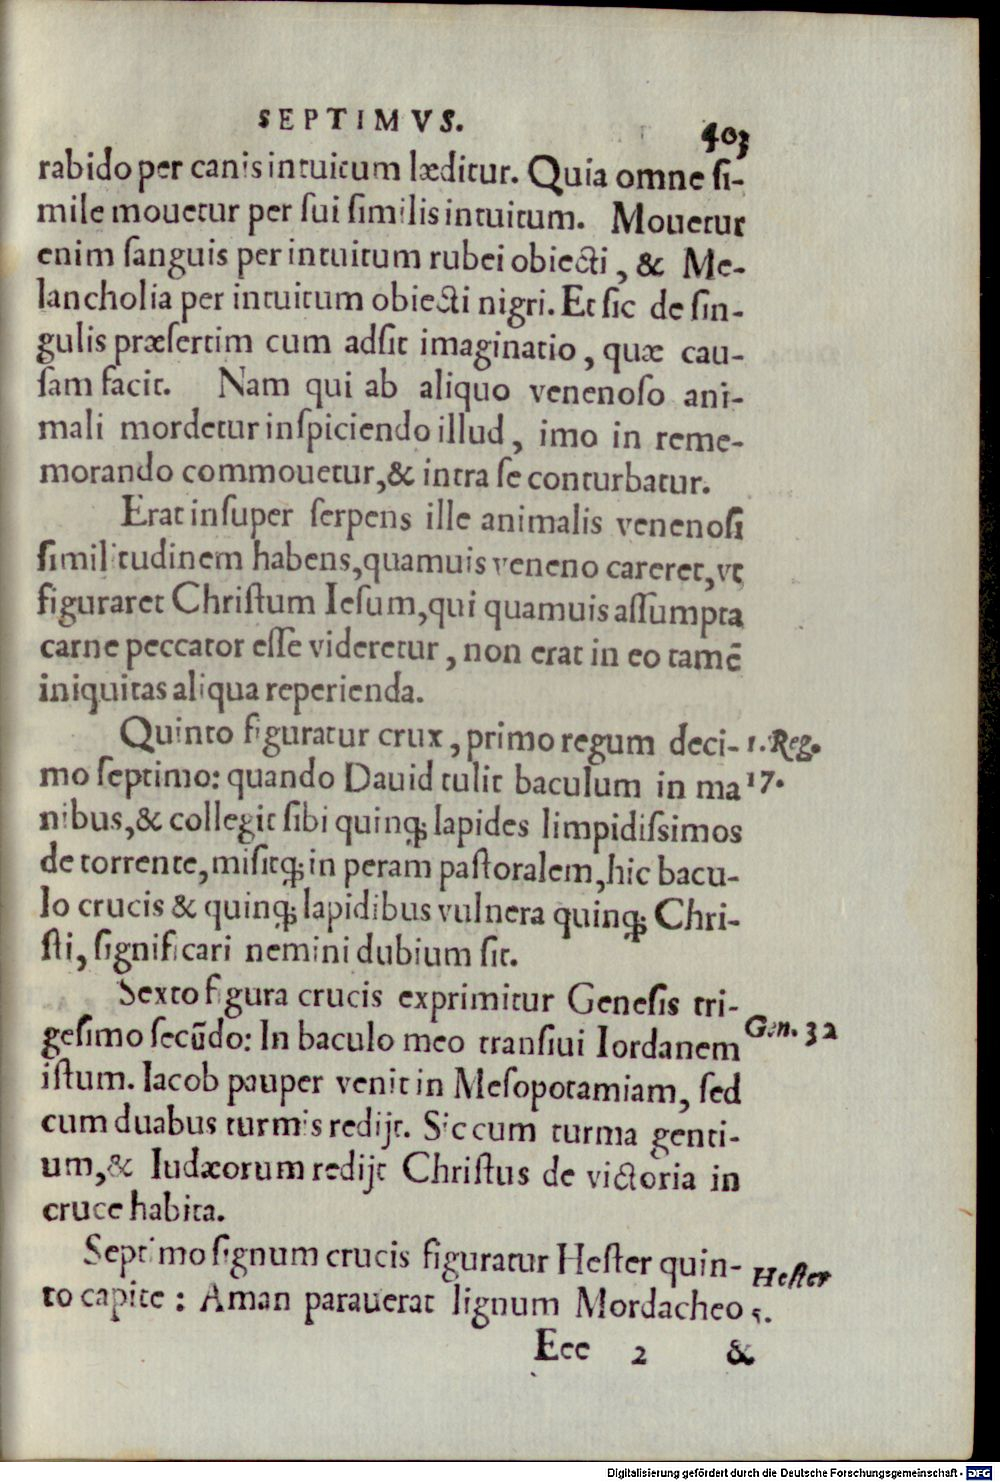 SEPTIMVS. 403
rabido per canis intuitum læditur. Quia omne si-
mile mouetur per sui similis intuitum. Mouetur
enim sanguis per intuitum rubei obiecti, & Me-
lancholia per intuitum obiecti nigri. Et sic de sin-
gulis præsertim cum adsit imaginatio, quæ cau-
sam facit. Nam qui ab aliquo venenoso ani-
mali mordetur inspiciendo illud, imo in reme-
morando commouetur, & intra se conturbatur.
Erat insuper serpens ille animalis venenosi
similitudinem habens, quamuis veneno careret, vt
figuraret Christum Iesum, qui quamuis assumpta
carne peccator esse videretur, non erat in eo tamē
iniquitas aliqua reperienda.
Quinto figuratur crux, primo regum deci- 1. Reg.
mo septimo: quando Dauid tulit baculum in ma 17.
nibus, & collegit sibi quinq; lapides limpidissimos
de torrente, misitq; in peram pastoralem, hic bacu-
lo crucis & quinq; lapidibus vulnera quinq; Chri-
sti, significari nemini dubium sit.
Sexto figura crucis exprimitur Genesis tri-
gesimo secūdo: In baculo meo transiui Iordanem Gen. 32
istum. Iacob pauper venit in Mesopotamiam, sed
cum duabus turmis redijt. Sic cum turma genti-
um, & Iudæorum redijt Christus de victoria in
cruce habita.
Septimo signum crucis figuratur Hester quin- Hester
to capite: Aman parauerat lignum Mordacheo 5.
Eee 2 &
Digitalisierung gefördert durch die Deutsche Forschungsgemeinschaft - DFG